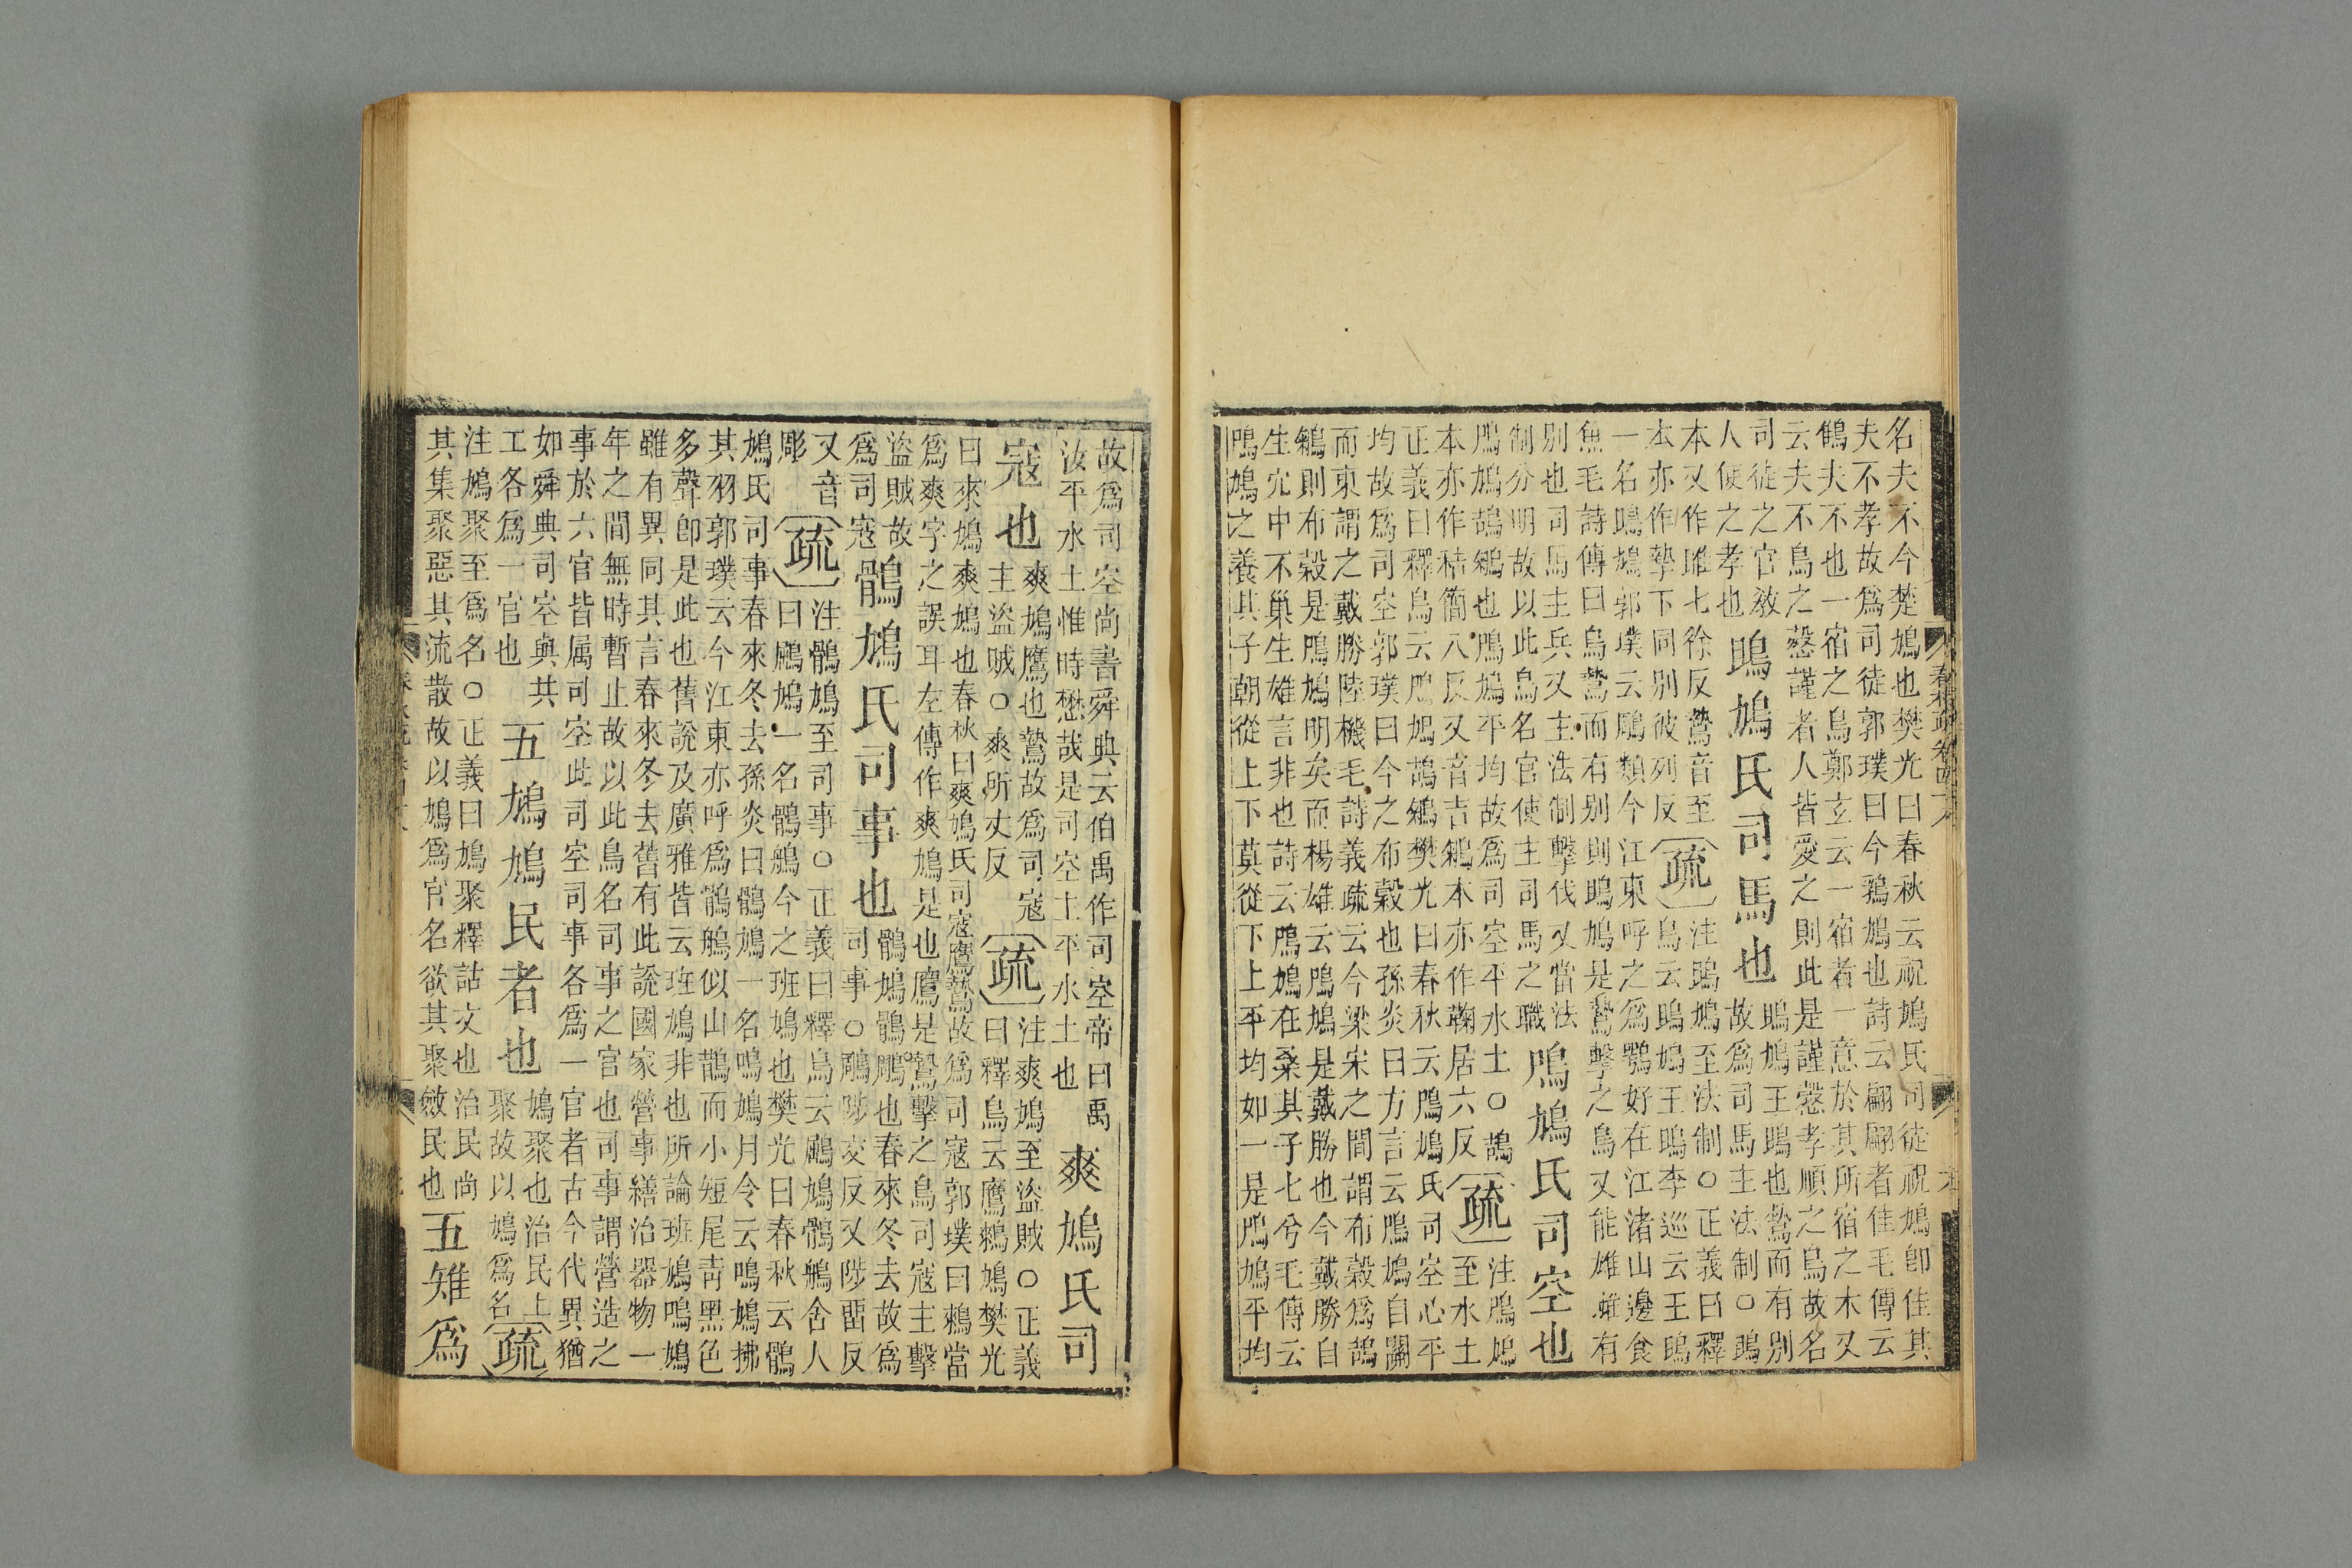 名夫不今楚鳩也樊光曰春秋云祝鳩氏司徒祝鳩即隹其
夫不孝故爲司徒郭璞曰今鵓鳩也詩云翩翩者隹毛傳云
鵻夫不也一宿之鳥鄭玄云一宿者一意於其所宿之木又
云夫不鳥之慤謹者人皆愛之則此是謹慤孝順之鳥故名
司徒之官敘
人使之孝也
鴡鳩氏司馬也
鴡鳩王鴡也鷙而有別
故爲司馬主法制○鴡
本又作雎七徐反鷙音至
本亦作摯下同別彼列反
疏
注鴡鳩至法制○正義曰釋
鳥云鴡鳩王鴡李巡云王鴡
一名鴡鳩郭璞云鵰類今江東呼之爲鶚好在江渚山邊食
魚毛詩傳曰鳥鷙而有別則鴡鳩是鷙擊之鳥又能雄雌有
別也司馬主兵又主法制擊伐又當法
制分明故以此鳥名官使主司馬之職
鳲鳩氏司空也
鳲鳩鴶鵴也鳲鳩平均故爲司空平水土○鴶
本亦作秸簡八反又音吉鵴本亦作鞠居六反
疏
注鳲鳩
至水土
正義曰釋鳥云鳲鳩鴶鵴樊光曰春秋云鳲鳩氏司空心平
均故爲司空郭璞曰今之布穀也孫炎曰方言云鳲鳩自關
而東謂之戴勝陸機毛詩義疏云今梁宋之間謂布穀爲鴶
鵴則布穀是鳲鳩明矣而楊雄云鳲鳩是戴勝也今戴勝自
生穴中不巢生雄言非也詩云鳲鳩在桑其子七兮毛傳云
鳲鳩之養其子朝從上下莫從下上平均如一是鳲鳩平均
故爲司空尚書舜典云伯禹作司空帝曰禹
汝平水土惟時懋哉是司空主平水土也
爽鳩氏司
寇也
爽鳩鷹也鷙故爲司寇
主盜賊○爽所丈反
疏
注爽鳩至盜賊○正義
曰釋鳥云鷹鶆鳩樊光
曰來鳩爽鳩也春秋曰爽鳩氏司寇鷹鷙故爲司寇郭璞曰鶆當
爲爽字之誤耳左傳作爽鳩是也鷹是鷙擊之鳥司寇主擊
盜賊故
爲司寇
鶻鳩氏司事也
鶻鳩鶻鵰也春來冬去故爲
司事○鵰陟交反又陟留反
又音
彫
疏
注鶻鳩至司事○正義曰釋鳥云鶌鳩鶻鵃舍人
曰鶌鳩一名鶻鵃今之班鳩也樊光曰春秋云鶻
鳩氏司事春來冬去孫炎曰鶻鳩一名鳴鳩月令云鳴鳩拂
其羽郭璞云今江東亦呼爲鶻鵃似山鵲而小短尾青黑色
多聲即是此也舊說及廣雅皆云班鳩非也所論班鳩鳴鳩
雖有異同其言春來冬去舊有此說國家營事繕治器物一
年之間無時暫止故以此鳥名司事之官也司事謂營造之
事於六官皆属司空此司空司事各爲一官者古今代異猶
如舜典司空與共
工各爲一官也
五鳩鳩民者也
鳩聚也治民上
聚故以鳩爲名
疏
注鳩聚至爲名○正義曰鳩聚釋詁文也治民尚
其集聚惡其流散故以鳩爲官名欲其聚斂民也
五雉爲